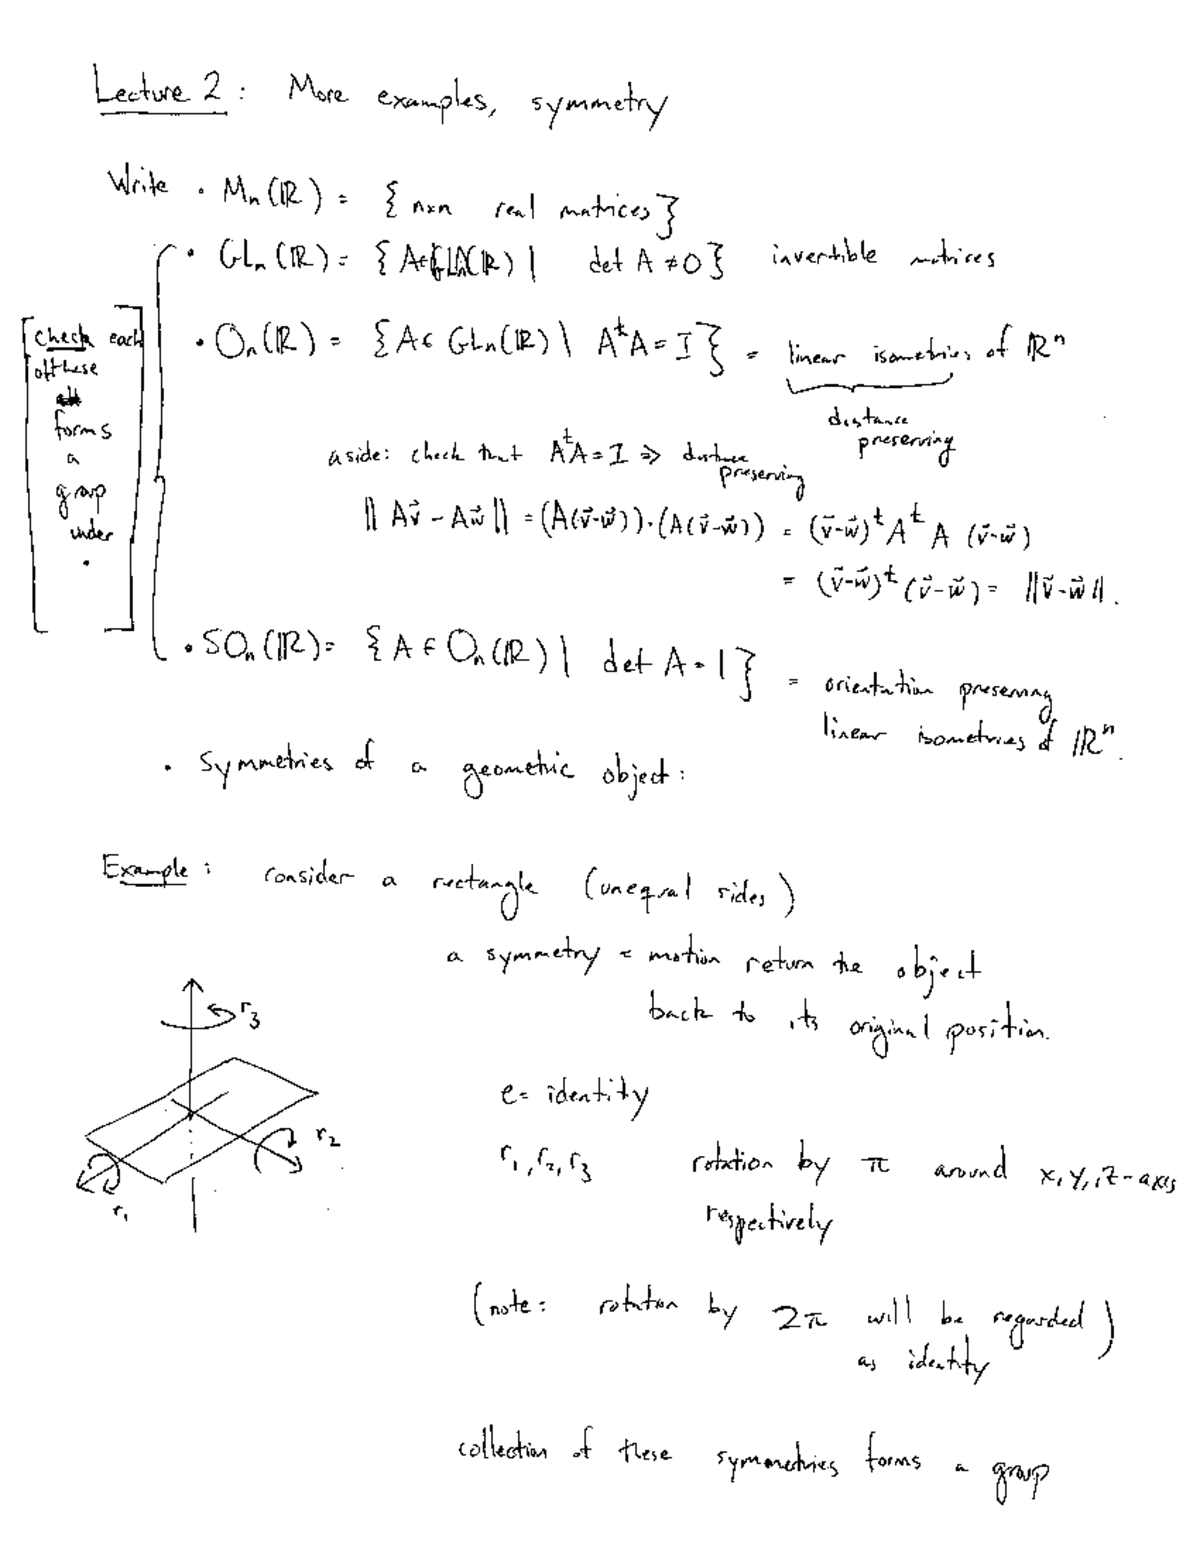 Lecture 2: More examples, symmetry
Write • Mₙ(ℝ) = { n×n real matrices }
• GLₙ(ℝ) = { A ∈ (ℝ) | det A ≠ 0 } invertible matrices
• Oₙ(ℝ) = { A ∈ GLₙ(ℝ) | AᵗA = I } = linear isometries of ℝⁿ
distance
preserving
[check each
of these
forms
a
group
under
•]
aside: check that AᵗA = I ⇒ distance
preserving
‖Av⃗ - Aw⃗‖ = (A(v⃗-w⃗))·(A(v⃗-w⃗)) = (v⃗-w⃗)ᵗAᵗA (v⃗-w⃗)
= (v⃗-w⃗)ᵗ(v⃗-w⃗) = ‖v⃗-w⃗‖.
• SOₙ(ℝ) = { A ∈ Oₙ(ℝ) | det A = 1 } = orientation preserving
linear isometries of ℝⁿ.
• Symmetries of a geometric object:
Example: consider a rectangle (unequal sides)
a symmetry = motion return the object
back to its original position.
r₃
r₂
r₁
e = identity
r₁, r₂, r₃ rotation by π around x, y, z-axis
respectively
(note: rotation by 2π will be regarded)
as identity
collection of these symmetries forms a group